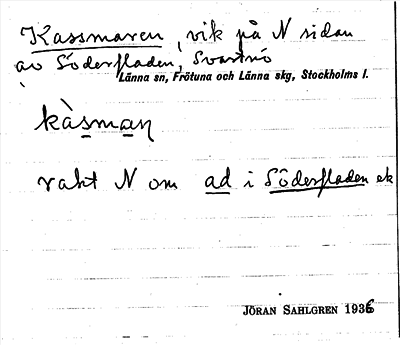 Kassmaren, vik på N sidan
av Söderfladen, Svartnö
Länna sn, Frötuna och Länna skg, Stockholms l.
kàsman
rakt N om ad i Söderfladen ek
JÖRAN SAHLGREN 1936